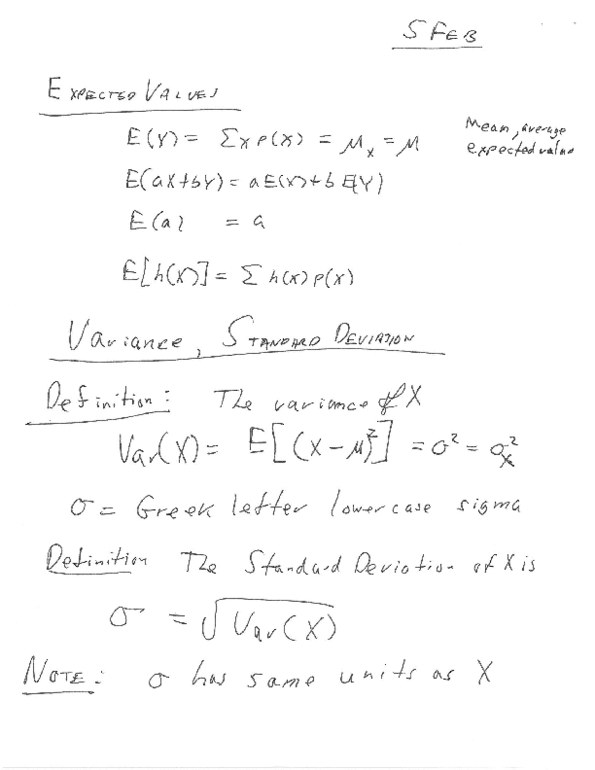 5 FEB
EXPECTED VALUES
E(Y) = Σ x p(x) = μ_x = μ
Mean, average
expected value
E(aX+bY) = a E(X) + b E(Y)
E(a) = a
E[h(X)] = Σ h(x) p(x)
Variance, STANDARD DEVIATION
Definition: The variance of X
Var(X) = E[(X-μ)²] = σ² = σ_X²
σ = Greek letter lowercase sigma
Definition The Standard Deviation of X is
σ = √Var(X)
NOTE: σ has same units as X